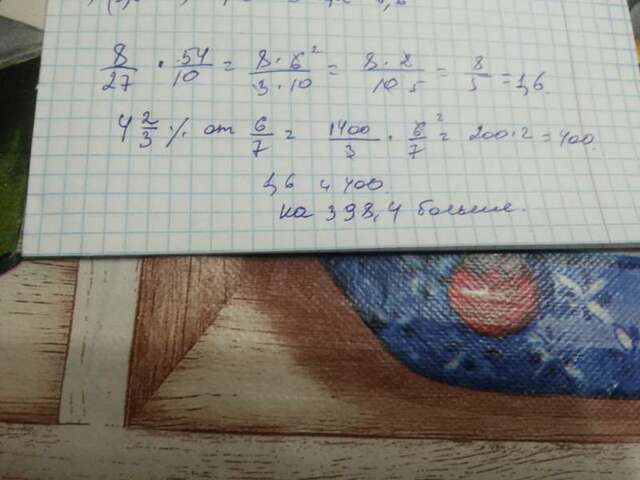 8/27 · 54/10 = 8·6²/3·10 = 8·2/10 5 = 8/5 = 1,6.
4 2/3 % от 6/7 = 1400/3 · 6²/7 = 200·2 = 400.
1,6 и 400.
на 398,4 больше.